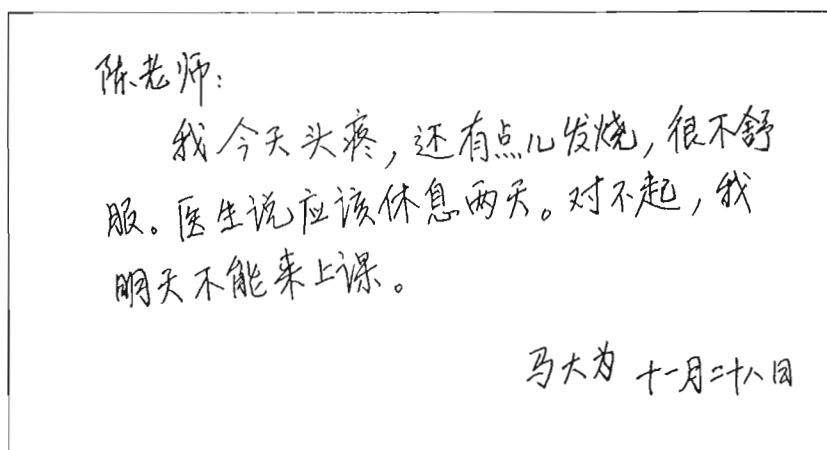 陈老师：
我今天头疼，还有点儿发烧，很不舒
服。医生说应该休息两天。对不起，我
明天不能来上课。
马大为 十一月二十八日